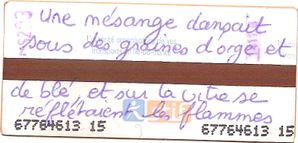 Une mésange dansait
sous des graines d'orge et
de blé et sur la vitre se
reflétaient les flammes
67784613 15 67784613 15